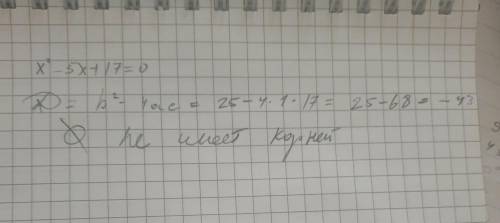 x² - 5x + 17 = 0
D = b² - 4ac = 25 - 4 · 1 · 17 = 25 - 68 = -43
не имеет корней